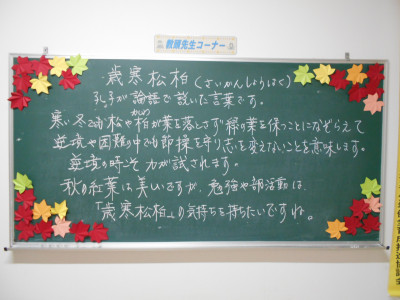 教頭先生コーナー
歳寒松柏(さいかんしょうはく)
孔子が論語で説いた言葉です。
寒い冬でも松や柏(かしわ)が葉を落とさず緑の葉を保つことになぞらえて
逆境や困難の中でも節操を守り志を変えないことを意味します。
逆境の時こそ力が試されます。
秋の紅葉は美しいですが、勉強や部活動は、
「歳寒松柏」の気持ちを持ちたいですね。